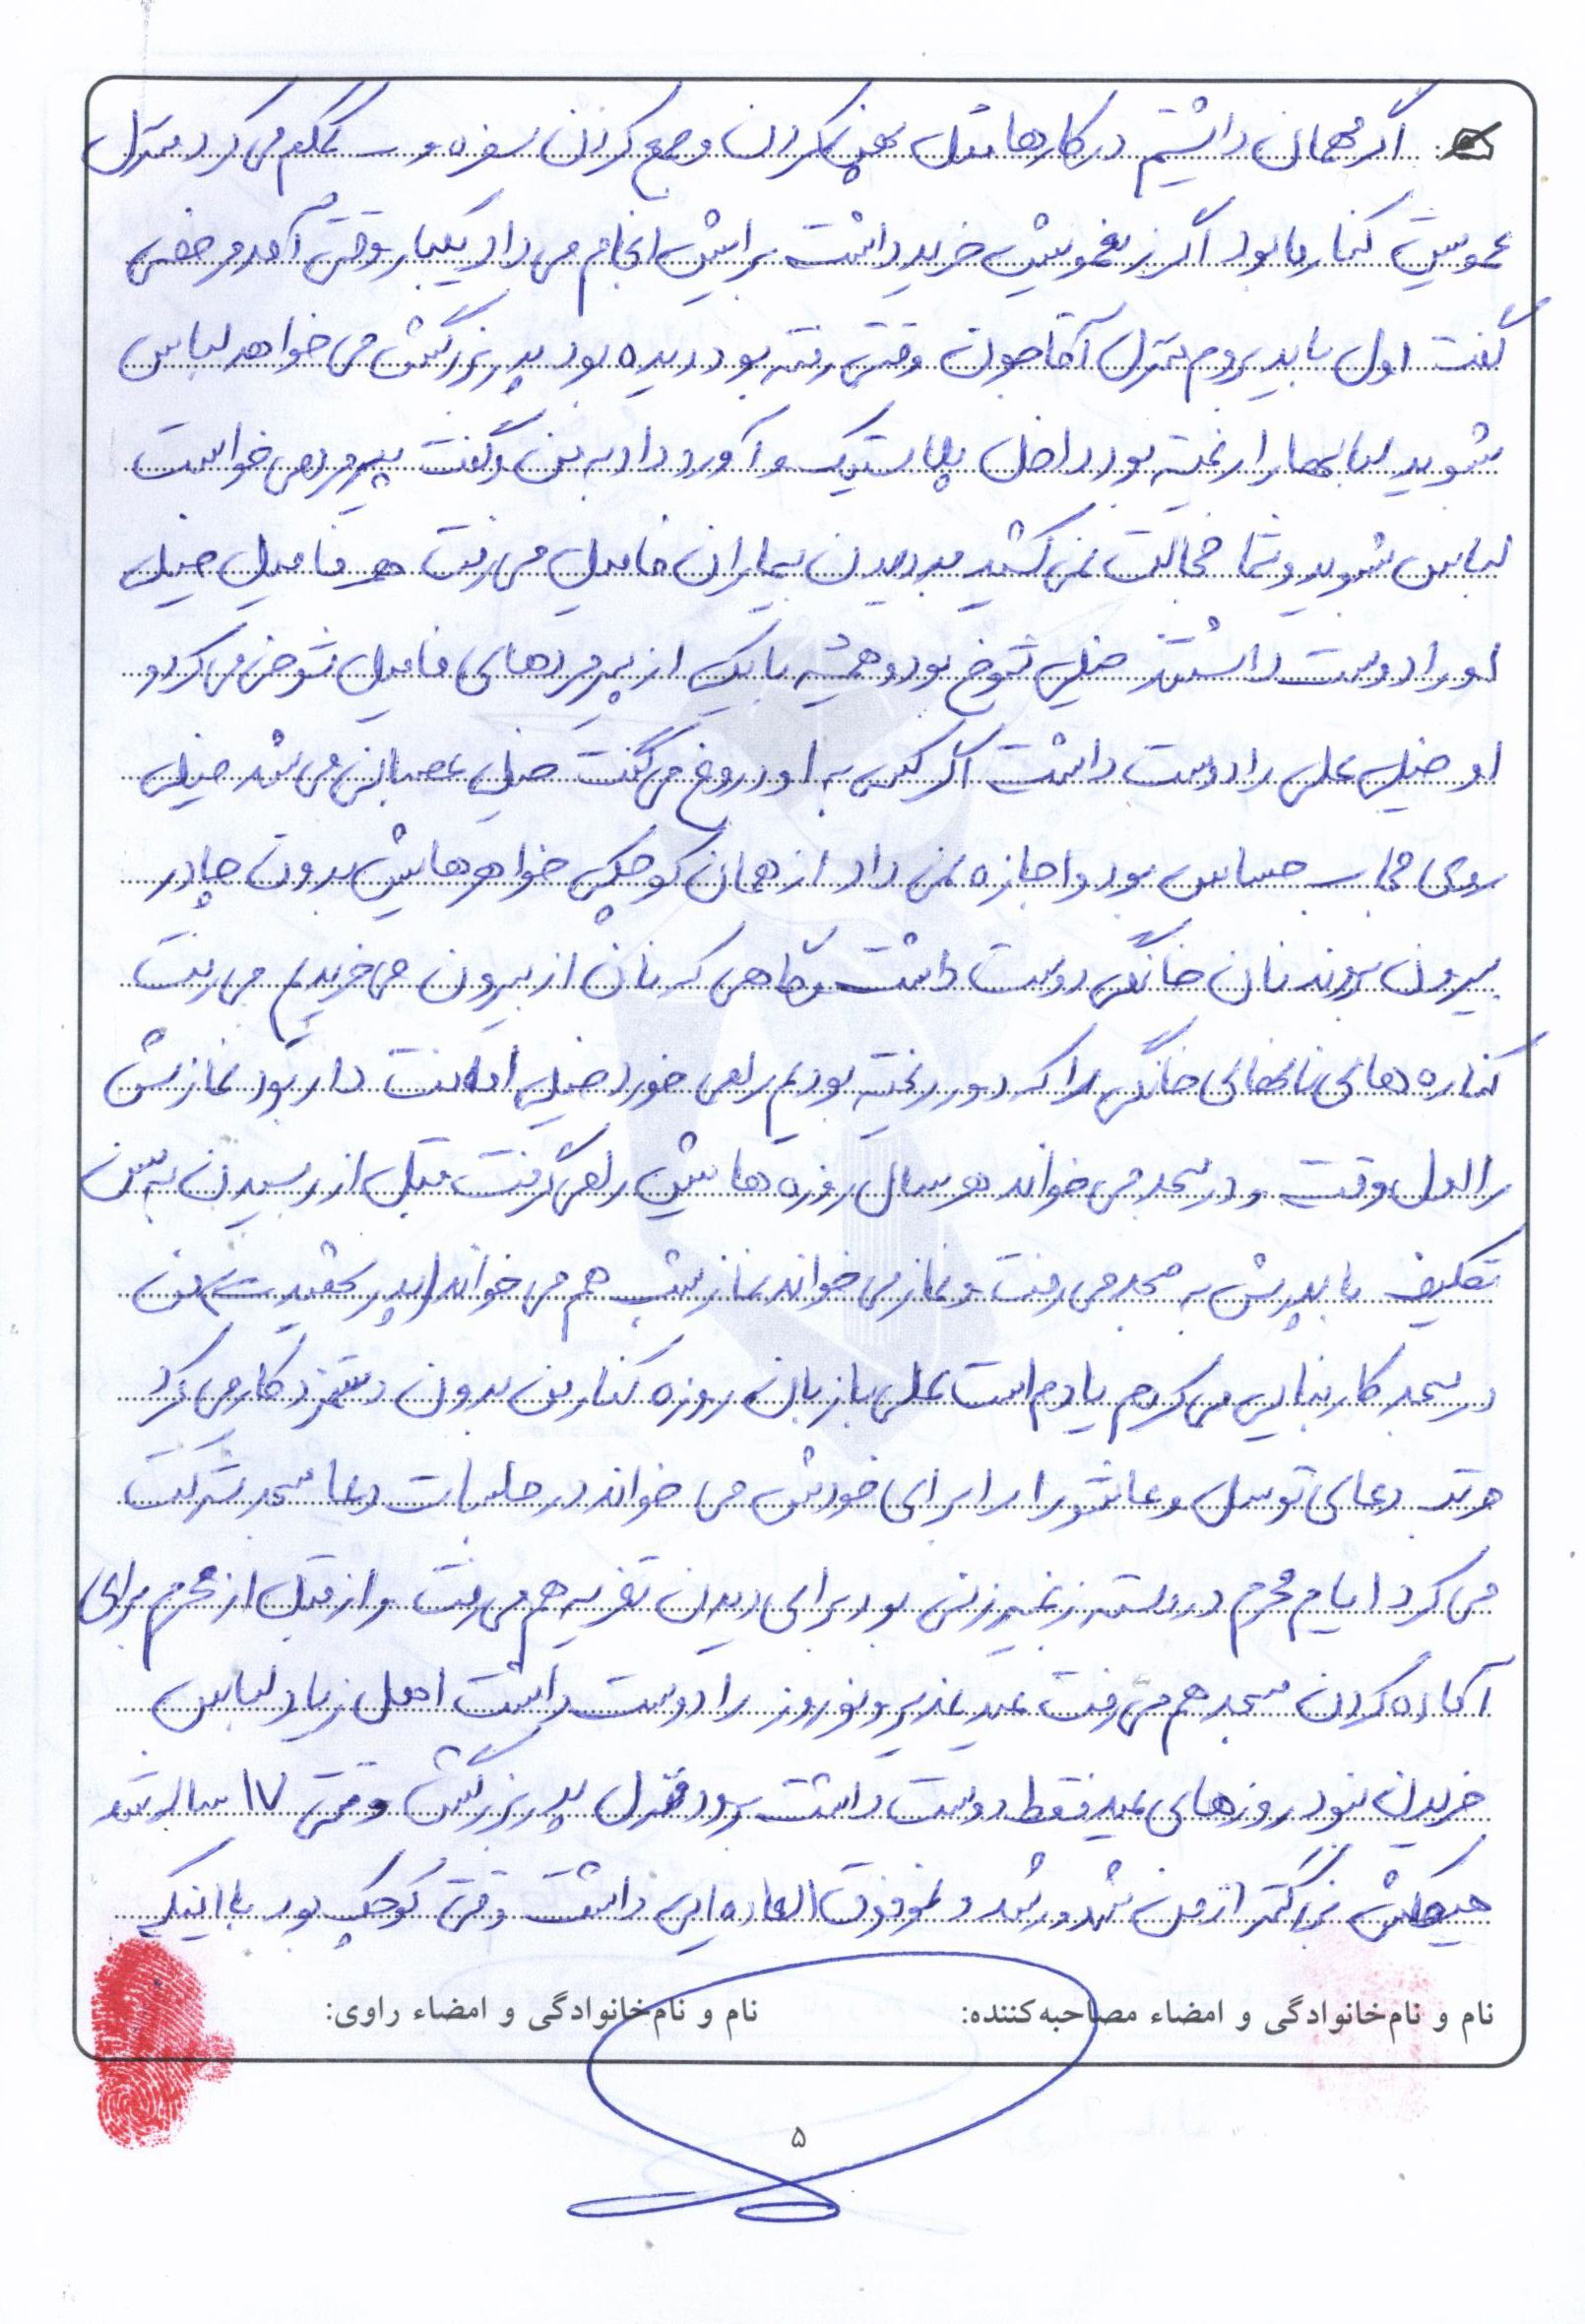 اگر مهمان داشتیم در کارها مثل پهن کردن و جمع کردن سفره و کمکم می کرد منزل
عمویش کنار ما بود اگر زنعمویش خرید داشت برایش انجام می داد یکبار وقتی آمد مرخصی
گفت اول باید بروم منزل آقاجون وقتی رفته بود دیده بود پدربزرگش می خواهد لباس
بشوید لباسها را ریخته بود داخل پلاستیک و آورد داد به من و گفت پیرمرد می خواست
لباس بشوید و شما خجالت نمی کشید به دیدن بیماران فامیل می رفت همه فامیل خیلی
او را دوست داشتند خیلی شوخ بود و همیشه با یکی از پیرمردهای فامیل شوخی می کرد و
او خیلی علی را دوست داشت اگر کسی به او دروغ می گفت خیلی عصبانی می شد خیلی
روی حجاب حساس بود و اجازه نمی داد از همان کوچکی خواهرهایش بدون چادر
بیرون بروند نان خانگی دوست داشت گاهی که نان از بیرون می خریدیم می رفت
کناره های نانهای خانگی را که دور ریخته بودیم را می خورد خیلی امانت دار بود نمازش
را اول وقت و در مسجد می خواند هر سال روزه هایش را می گرفت قبل از رسیدن به سن
تکلیف با پدرش به مسجد می رفت و نماز می خواند نماز شب هم می خواند (پدر شهید) من
در مسجد کار بنایی می کردم یادم است علی با زبان روزه کنار من بدون دستمزد کار می کرد
مرتب دعای توسل و عاشورا را برای خودش می خواند در جلسات دعا مسجد شرکت
می کرد ایام محرم در دسته زنجیرزنی بود برای دیدن تعزیه هم می رفت و از قبل از محرم برای
آماده کردن مسجد هم می رفت عید غدیر و نوروز را دوست داشت اهل زیاد لباس
خریدن نبود روزهای عید فقط دوست داشت برود منزل پدربزرگش وقتی ۱۷ ساله شد
هیکلش بزرگتر از من شد و رشد و نمو فوق العاده ایی داشت وقتی کوچک بود با اینکه
نام و نام‌خانوادگی و امضاء مصاحبه‌کننده: نام و نام‌خانوادگی و امضاء راوی:
۵